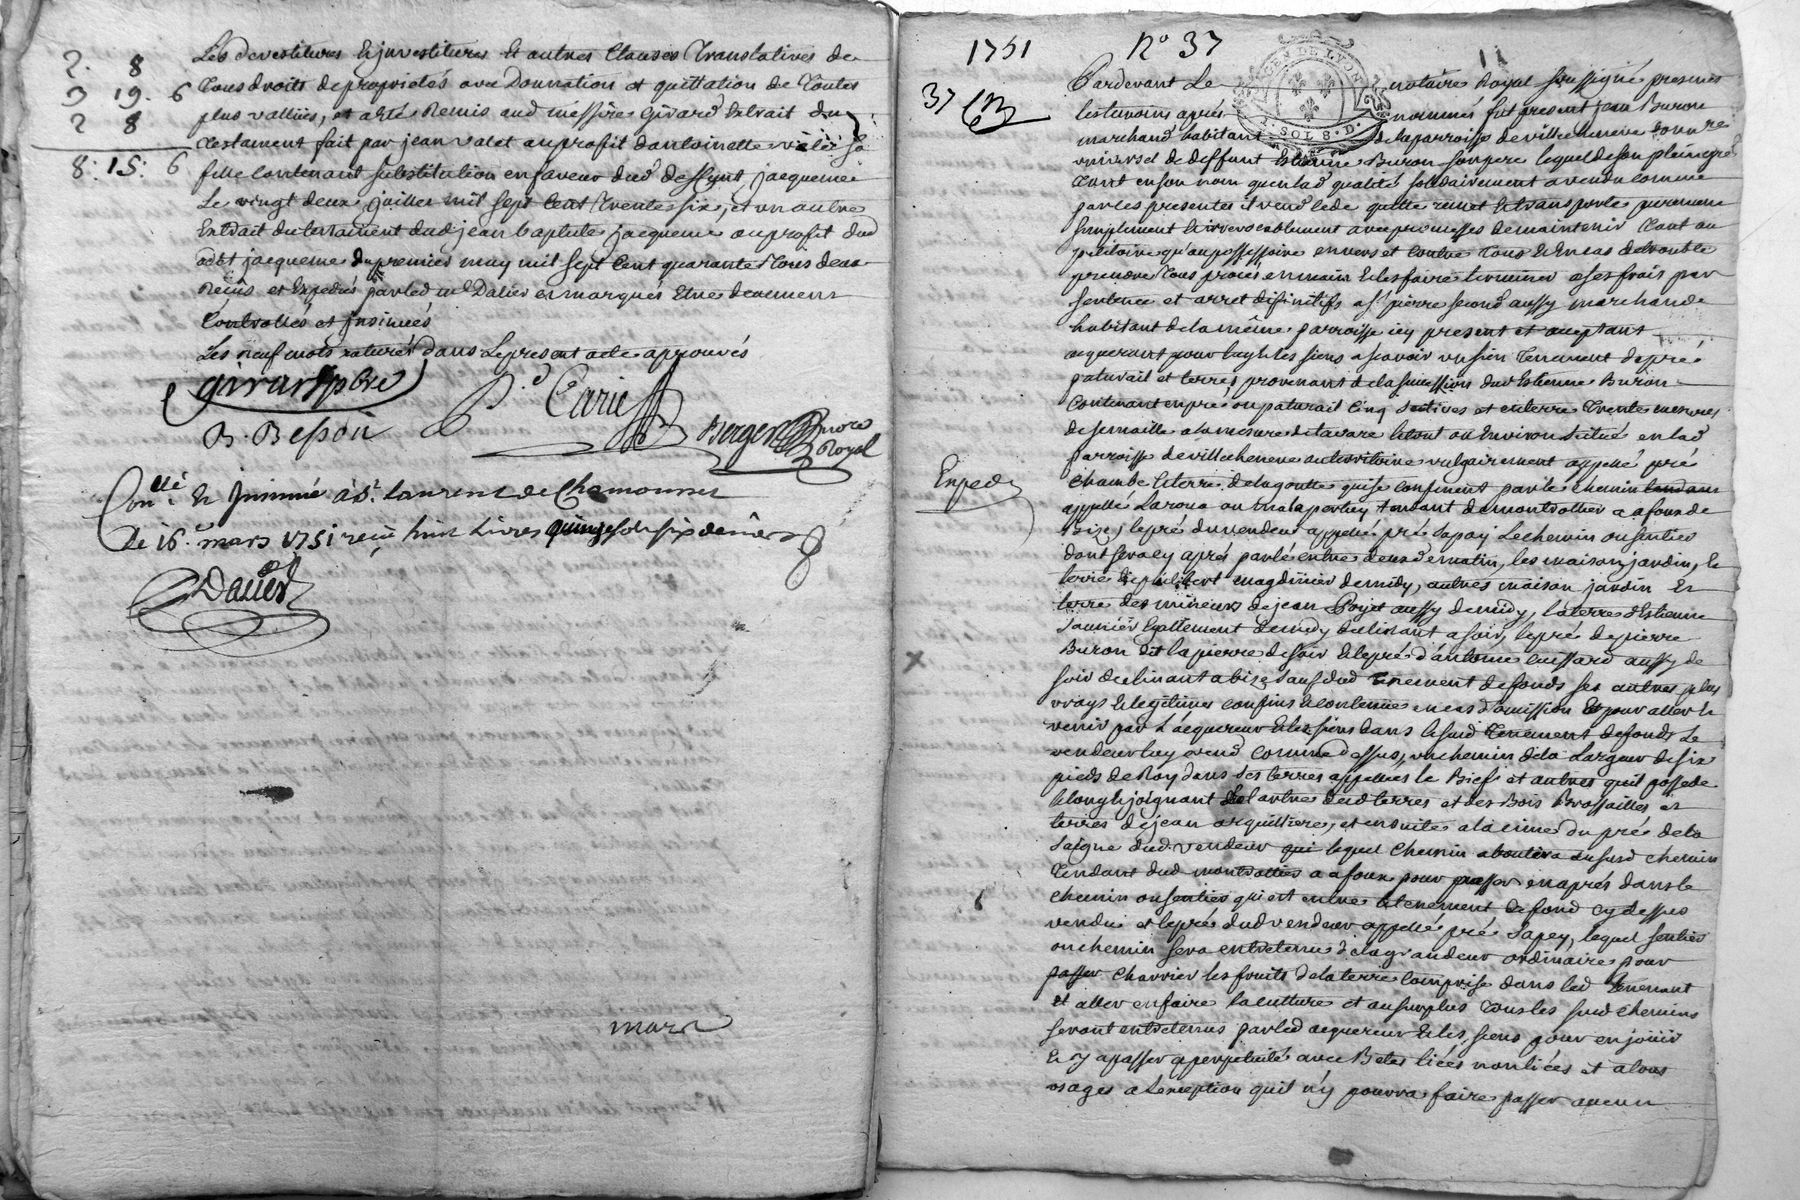 2. 8
3 19. 6
2 8
8: 15: 6
Les devestitures & jnvestitures et autres Clauses Translatives de
Tous droits de proprietés avec Donnation et quittation de Toutes
plus vallües, et a eté Remis aud messire Girard Extrait du
Testament fait par jean valet au profit dantoinette valet sa
fille Contenant Substitution en faveur dud deffunt jacqueme
Le vingt deux juillet mil sept Cent Trente six, et un autre
Extrait du testament dud jean baptiste jacqueme au profit dud
jacqueme du premier may mil sept Cent quarante Tous deux
Recûs et Expediés par led Dalier et marqués Etre deuement
Controllés et jnsinués
Les neuf mots raturés dans Le present acte aprouvés
girard ptre
B. Besson
Berger
Royal
Con.llé & Jnsinué à St. Laurent de Chamousset
Le 16e. mars 1751 reçû huit Livres quinze sols six deniers
Dalier
mars
1751 No 37
GEN DE LYON
2. SOL 8. D.
37
Expedié
Pardevant Le notaire Royal soussigné presents
les temoins aprés nommés fut present jean Buron
marchand habitant de la parroisse de villechenève
universel de deffunt Estienne Buron son pere lequel de son plein gré
Tant en son nom qu'en lad qualité solidairement a vendu comme
par les presentes il vend cede quitte remet et transporte purement
simplement & irrevocablement avec promesses de maintenir Tant au
petitoire qu'au possessoire envers et contre Tous & en cas de trouble
prendre Tous procès en main & les faire terminer a ses frais par
sentence et arret difinitifs a Sr. pierre second aussy marchand
habitant de la même parroisse icy present et acceptant
acquerant pour luy & les siens a scavoir un sien Tenement de pré
paturail et terres provenant de la succession dud Estienne Buron
Contenant en pré ou paturail Cinq seitives et en terre Trente mesures
de semaille a la mesure de tarare le tout ou Environ situé en lad
parroisse de villechenève au territoire vulgairement appellé pré
Chambe & terre de la goutte qui se confinent par le chemin
appellé Laroua ou tendant de montrottier a afoux de
Bize, le pré du vendeur appellé pré Sapay Le chemin ou sentier
dont sera cy après parlé entre deux de matin, les maison, jardin, &
terre de philibert magdinier de midy, autres maison jardin &
terre des mineurs de jean aussy de midy, la terre d'Estienne
Saunier Egallement de midy declinant a soir, le pré de pierre
Buron dit la pierre de soir & le pré d'antoine cuissard aussy de
soir declinant a bize sauf dud Tenement de fonds ses autres plus
vrays & legitimes confins & contenue en cas d'omission & pour aller &
venir par L'acquereur & les siens dans le susd Tenement de fonds Le
vendeur luy vend Comme dessus, un chemin de la Largeur de six
pieds de Roy dans ses terres appellées le Bief et autres qu'il possede
le long & joignant de l'autre desd terres et des Bois Brossailles et
terres de jean arquilliere, et ensuite a la cime du pré de la
Saigne dud. vendeur lequel Chemin aboutira au susd chemin
Tendant dud montrottier a afoux pour passer en aprés dans le
Chemin ou sentier qui est entre le tenement de fond cy dessus
vendu et le pré dud vendeur appellé pré Sapey, lequel sentier
ou chemin sera entretenu de la grandeur ordinaire pour
passer Charrier les fruits de la terre comprise dans led Tenement
et aller en faire la culture et au surplus Tous les susd chemins
seront entretenus par led acquereur & les siens pour en jouir
& y apasser a perpetuité avec Betes liées non liées et a tous
usages a L'exception qu'il n'y pourra faire passer aucun